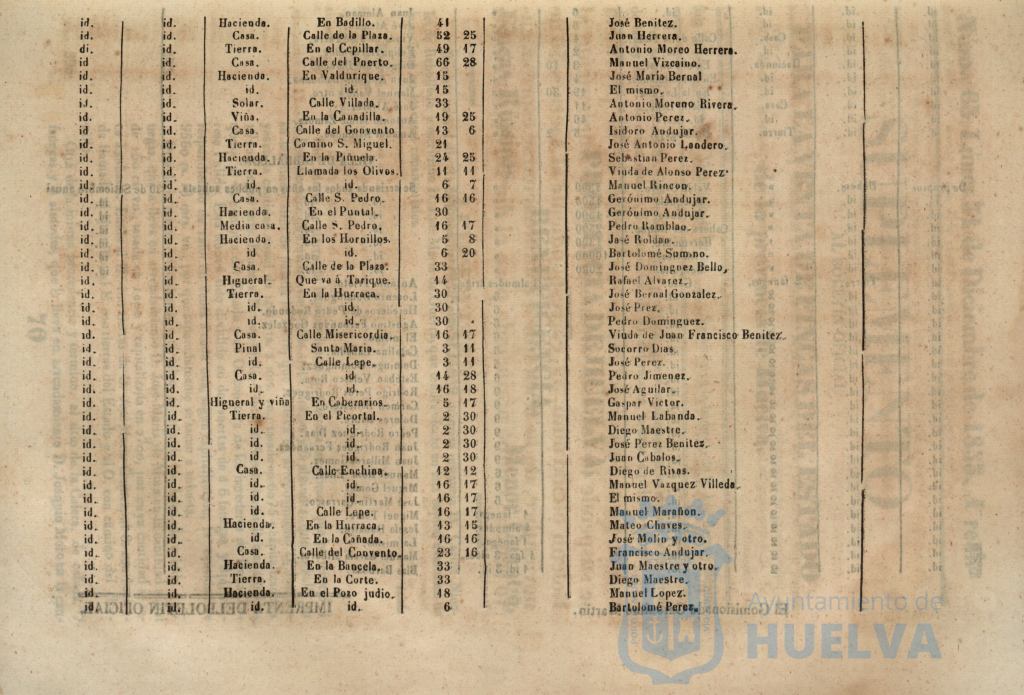 id. id. Hacienda. En Badillo. 41 José Benitez.
id. id. Casa. Calle de la Plaza. 52 25 Juan Herrera.
di. id. Tierra. En el Cepillar. 49 17 Antonio Moreo Herrera.
id id. Casa. Calle del Puerto. 66 28 Manuel Vizcaino.
id. id. Hacienda. En Valdurique. 15 José Maria Bernal
id. id. id. id. 15 El mismo.
id. id. Solar. Calle Villada. 33 Antonio Moreno Rivera.
id. id. Viña. En la Canadilla. 19 25 Antonio Perez.
id id. Casa. Calle del Gonvento 13 6 Isidoro Andujar.
id. id. Tierra. Camino S. Miguel. 21 José Antonio Landero.
id. id. Hacienda. En la Piñuela. 24 25 Sebastian Perez.
id. id. Tierra. Llamada los Olivos. 11 11 Viuda de Alonso Perez
id. id. id. id. 6 7 Manuel Rincon.
id. id. Casa. Calle S. Pedro. 16 16 Gerónimo Andujar.
id. id. Hacienda. En el Puntal. 30 Gerónimo Andujar.
id. id. Media casa. Calle S. Pedro. 16 17 Pedro Ramblao.
id. id. Hacienda. En los Hornillos. 5 8 José Roldan.
id. id. id id. 6 20 Bartolomé Sumino.
id. id. Casa. Calle de la Plaza. 33 José Dominguez Bello.
id. id. Higueral. Que va á Tarique. 14 Rafael Alvarez.
id. id. Tierra. En la Hurraca. 30 José Bernal Gonzalez.
id. id. id. id. 30 José Prez.
id. id. id. id. 30 Pedro Dominguez.
id. id. Casa. Calle Misericordia. 16 17 Viuda de Juan Francisco Benitez.
id. id. Pinal Santa Maria. 3 11 Socorro Dias.
id. id. id. Calle Lepe. 3 11 José Perez.
id. id. Casa. id. 14 28 Pedro Jimenez.
id. id. id. id. 16 18 José Aguilar.
id. id. Higueral y viña En Caberarios. 5 17 Gaspar Victor.
id. id. Tierra. En el Picortal. 2 30 Manuel Labanda.
id. id. id. id. 2 30 Diego Maestre.
id. id. id. id. 2 30 José Perez Benitez.
id. id. id. id. 2 30 Juan Cabalos.
id. id. Casa. Calle Enchina. 12 12 Diego de Rivas.
id. id. id. id. 16 17 Manuel Vazquez Villeda.
id. id. id. id. 16 17 El mismo.
id. id. id. Calle Lepe. 16 17 Manuel Marañon.
id. id. Hacienda. En la Hurraca. 13 15 Mateo Chaves.
id. id. id. En la Cañada. 16 16 José Molin y otro.
id. id. Casa. Calle del Convento. 23 16 Francisco Andujar.
id. id. Hacienda. En la Bancela. 33 Juan Maestre y otro.
id. id. Tierra. En la Corte. 33 Diego Maestre.
id. id. Hacienda. En el Pozo judio. 18 Manuel Lopez.
id. id. id. id. 6 Bartolomé Perez.
Ayuntamiento de
HUELVA